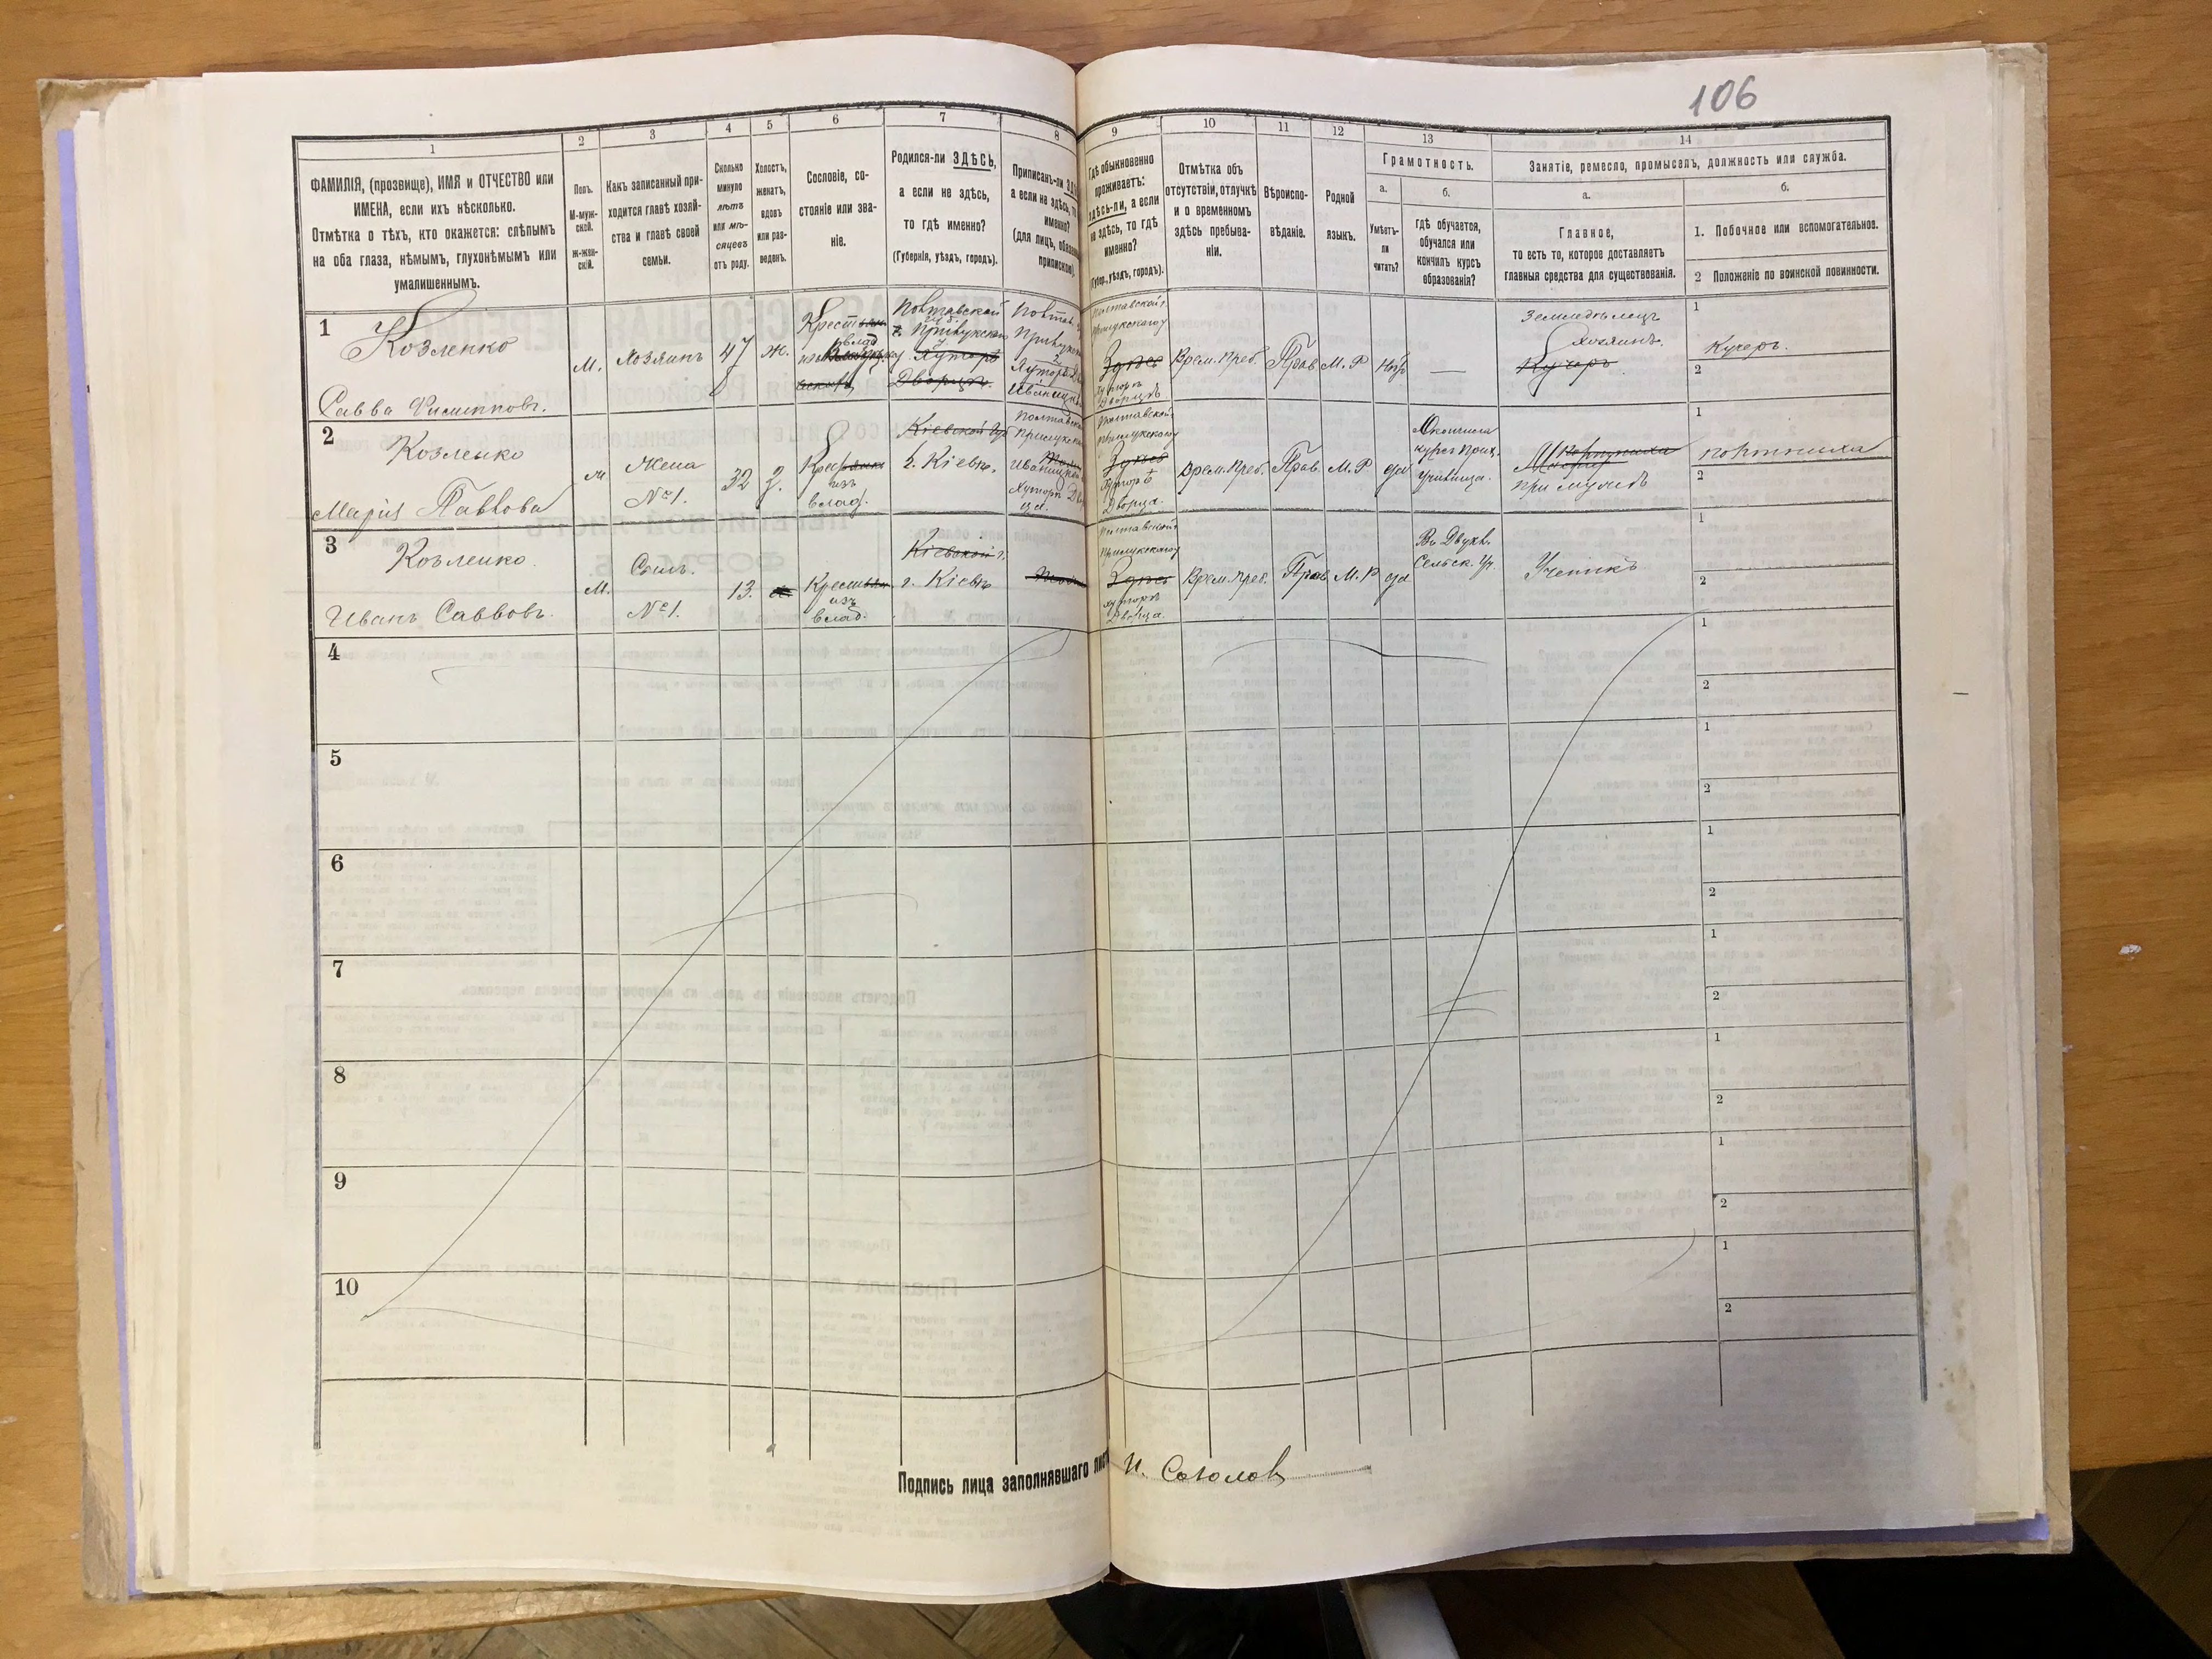 106
1
2
3
4
5
6
7
8
9
10
11
12
13
14
ФАМИЛІЯ, (прозвище), ИМЯ и ОТЧЕСТВО или
ИМЕНА, если ихъ нѣсколько.
Отмѣтка о тѣхъ, кто окажется: слѣпымъ
на оба глаза, нѣмымъ, глухонѣмымъ или
умалишеннымъ.
Полъ.
М-муж-
ской.
ж-жен-
скій.
Какъ записанный при-
ходится главѣ хозяй-
ства и главѣ своей
семьи.
Сколько
минуло
лѣтъ
или мѣ-
сяцевъ
отъ роду.
Холостъ,
женатъ,
вдовъ
или раз-
веденъ.
Сословіе, со-
стояніе или зва-
ніе.
Родился-ли ЗДѢСЬ,
а если не здѣсь,
то гдѣ именно?
(Губернія, уѣздъ, городъ).
Приписанъ-ли
а если не здѣсь, то
именно?
(для лицъ,
припискою).
Гдѣ обыкновенно
проживаетъ:
здѣсь-ли, а если
не здѣсь, то гдѣ
именно?
(Губер., уѣздъ, городъ).
Отмѣтка объ
отсутствіи, отлучкѣ
и о временномъ
здѣсь пребыва-
ніи.
Вѣроиспо-
вѣданіе.
Родной
языкъ.
Грамотность.
а.
Умѣетъ-
ли
читать?
б.
Гдѣ обучается,
обучался или
кончилъ курсъ
образованія?
Занятіе, ремесло, промыселъ, должность или служба.
а.
Главное,
то есть то, которое доставляетъ
главныя средства для существованія.
б.
1. Побочное или вспомогательное.
2 Положеніе по воинской повинности.
1
Козленко
Савва
М.
Хозяинъ
47
ж.
Полтавской
Хуторъ
Дворецъ.
Полтавской
Прилукскаго
Здѣсь
Хуторъ
Дворецъ
Врем. Преб.
Прав
М. Р
Земледѣлецъ
Хозяинъ.
Кучеръ
1
Кучеръ.
2
2
Козленко
Марія Павлова
Жена
№ 1.
32
з.
изъ
влад.
Кіевской
г. Кіевъ.
Полтавской
Прилукскаго
Здѣсь
Хуторъ
Дворца.
Врем. Преб.
Прав.
М. Р
да
Окончила
курсъ Прих.
Училища.
Портниха
При мужѣ
1
портниха
2
3
Козленко.
Иванъ Саввовъ.
М.
Сынъ.
№ 1.
13.
изъ
влад.
Кіевской г.
г. Кіевъ
Полтавской
Прилукскаго
Здѣсь
Хуторъ
Дворца.
Врем. Преб.
Прав
М. Р
да
Въ Двухкл.
Сельск. Уч.
Ученикъ
1
2
4
1
2
5
1
2
6
1
2
7
1
2
8
1
2
9
1
2
10
1
2
Подпись лица заполнявшаго
И. Соколов